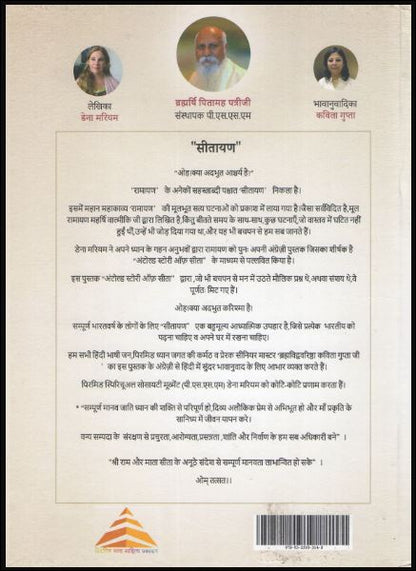 लेखिका
डेना मरियम
ब्रह्मर्षि पितामह पत्रीजी
संस्थापक पी.एस.एस.एम
भावानुवादिका
कविता गुप्ता
"सीतायण"
"ओह!क्या अदभुत आश्चर्य है!»
"रामायण" के अनेकों सहस्ताब्दी पश्चात 'सीतायण' निकला है।
इसमें महान महाकाव्य 'रामायण' की मूलभूत सत्य घटनाओं को प्रकाश में लाया गया है।जैसा सर्वविदित है,मूल
रामायण महर्षि वाल्मीकि जी द्वारा लिखित है,किंतु बीतते समय के साथ-साथ,कुछ घटनाएँ,जो वास्तव में घटित नहीं
हुई थीं,उन्हें भी जोड़ दिया गया था,और यह भी बचपन से हम सब जानते हैं।
डेना मरियम ने अपने ध्यान के गहन अनुभवों द्वारा रामायण को पुनः अपनी अंग्रेज़ी पुस्तक जिसका शीर्षक है
"अंटोल्ड स्टोरी ऑफ़ सीता" के माध्यम से पल्लवित किया है।
इस पुस्तक "अंटोल्ड स्टोरी ऑफ़ सीता" द्वारा ,जो भी बचपन से मन में उठते मौलिक प्रश्न थे,अथवा संशय थे,वे
पूर्णतः मिट गए हैं।
ओह!क्या अदभुत करिश्मा है!
सम्पूर्ण भारतवर्ष के लोगों के लिए "सीतायण" एक बहुमूल्य आध्यात्मिक उपहार है,जिसे प्रत्येक भारतीय को
पढ़ना चाहिए व अपने घर में रखना चाहिए।
हम सभी हिंदी भाषी जन,पिरमिड ध्यान जगत की कर्मठ व प्रेरक सीनियर मास्टर 'ब्रह्मविद्वरिष्ठा कविता गुप्ता जी
' का इस पुस्तक के अंग्रेज़ी से हिंदी में सुंदर भावानुवाद के लिए आभार व्यक्त करते हैं।
पिरमिड स्पिरिचुअल सोसायटी मूव्मेंट (पी.एस.एस.एम) डेना मरियम को कोटि-कोटि प्रणाम करता हैं।
* "सम्पूर्ण मानव जाति ध्यान की शक्ति से परिपूर्ण हो,दिव्य अलौकिक प्रेम से अभिभूत हो और माँ प्रकृति के
सानिध्य में जीवन यापन करे।
वन्य सम्पदा के संरक्षण से प्रचुरता,आरोग्यता,प्रसन्नता ,शांति और निर्वाण के हम सब अधिकारी बने" ।
"श्री राम और माता सीता के अनूठे संदेश से सम्पूर्ण मानवता लाभान्वित हो सके" ।
ओम् तत्सत।।